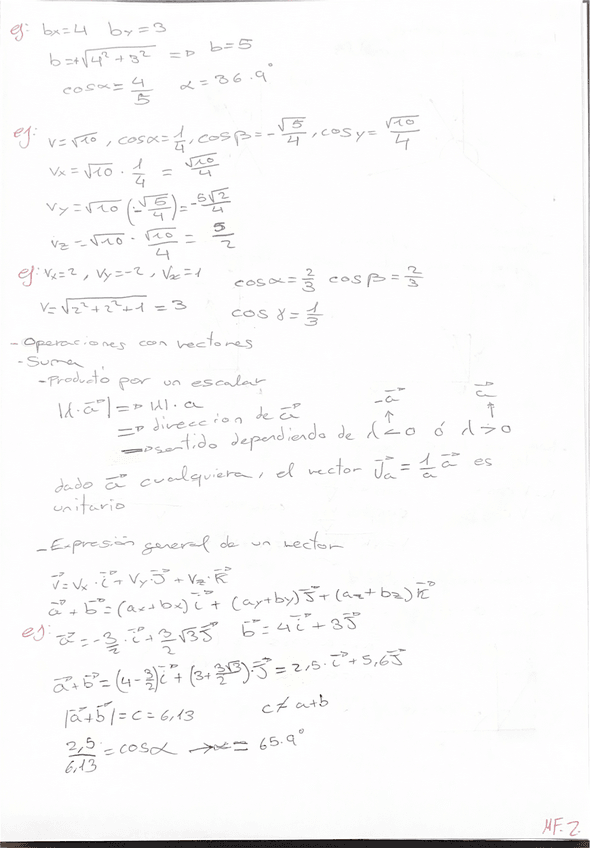 ej: bx=4 by=3
b=+√(4²+3²) => b=5
cosα=4/5 α=36.9°
ej: v=√10, cosα=1/4, cosβ=-√5/4, cosγ=√10/4
vx=√10 · 1/4 = √10/4
vy=√10 (-√5/4)=-5√2/4
vz=√10 · √10/4 = 5/2
ej: vx=2, vy=-2, vz=1 cosα=2/3 cosβ=2/3
v=√(2²+2²+1) = 3 cosγ=1/3
- Operaciones con vectores
- Suma
- Producto por un escalar
|λ·a⃗| => |λ|·a -a⃗ a⃗
=> direccion de a⃗ ↑ ↑
=> sentido dependiendo de λ<0 ó λ>0
dado a⃗ cualquiera, el vector U⃗a = 1/a a⃗ es
unitario
- Expresión general de un vector
v⃗=vx·i⃗+vy·J⃗+vz·K⃗
a⃗+b⃗=(ax+bx)i⃗+(ay+by)J⃗+(az+bz)K⃗
ej: a⃗=-3/2·i⃗+3/2√3J⃗ b⃗=4i⃗+3J⃗
a⃗+b⃗=(4-3/2)i⃗+(3+3√3/2)·J⃗=2,5·i⃗+5,6J⃗
|a⃗+b⃗|=c=6,13 c≠a+b
2,5/6,13=cosα → α= 65.9°
MF.2.